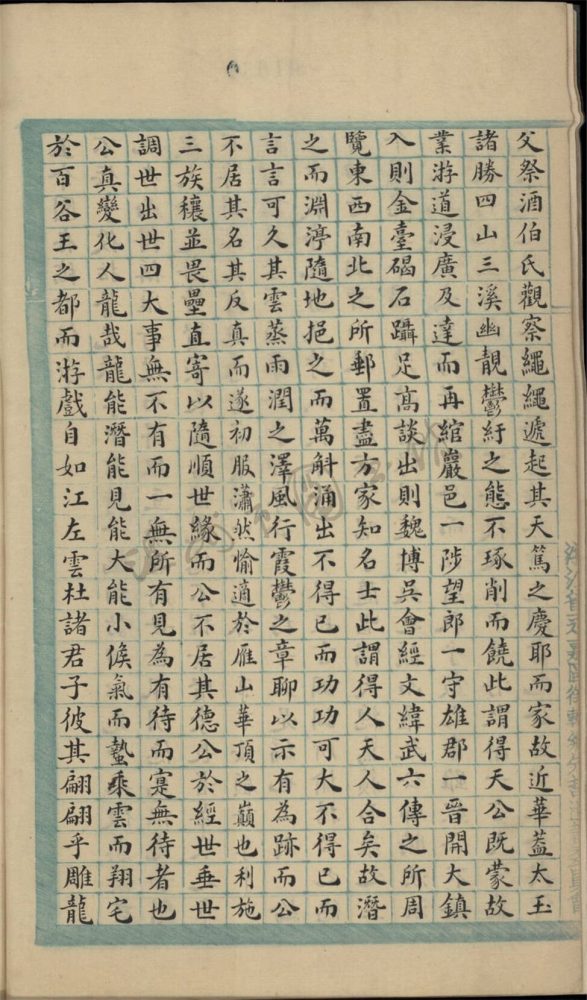 父祭酒伯氏觀察繩繩遞起其天篤之慶耶而家故近華蓋太玉
諸勝四山三溪幽靚鬱紆之態不琢削而饒此謂得天公既蒙故
業游道浸廣及達而再綰巖邑一陟望郎一守雄郡一晉開大鎮
入則金臺碣石躡足高談出則魏博吳會經文緯武六傳之所周
覽東西南北之所郵置盡方家知名士此謂得人天人合矣故潛
之而淵渟隨地挹之而萬斛涌出不得已而功功可大不得已而
言言可久其雲蒸雨潤之澤風行霞鬱之章聊以示有為跡而公
不居其名其反真而遂初服瀟然愉適於雁山華頂之巔也利施
三族穰並畏壘直寄以隨順世緣而公不居其德公於經世垂世
調世出世四大事無不有而一無所有見為有待而寔無待者也
公真變化人龍哉龍能潛能見能大能小倏氣而蟄乘雲而翔宅
於百谷王之都而游戲自如江左雲杜諸君子彼其翩翩乎雕龍